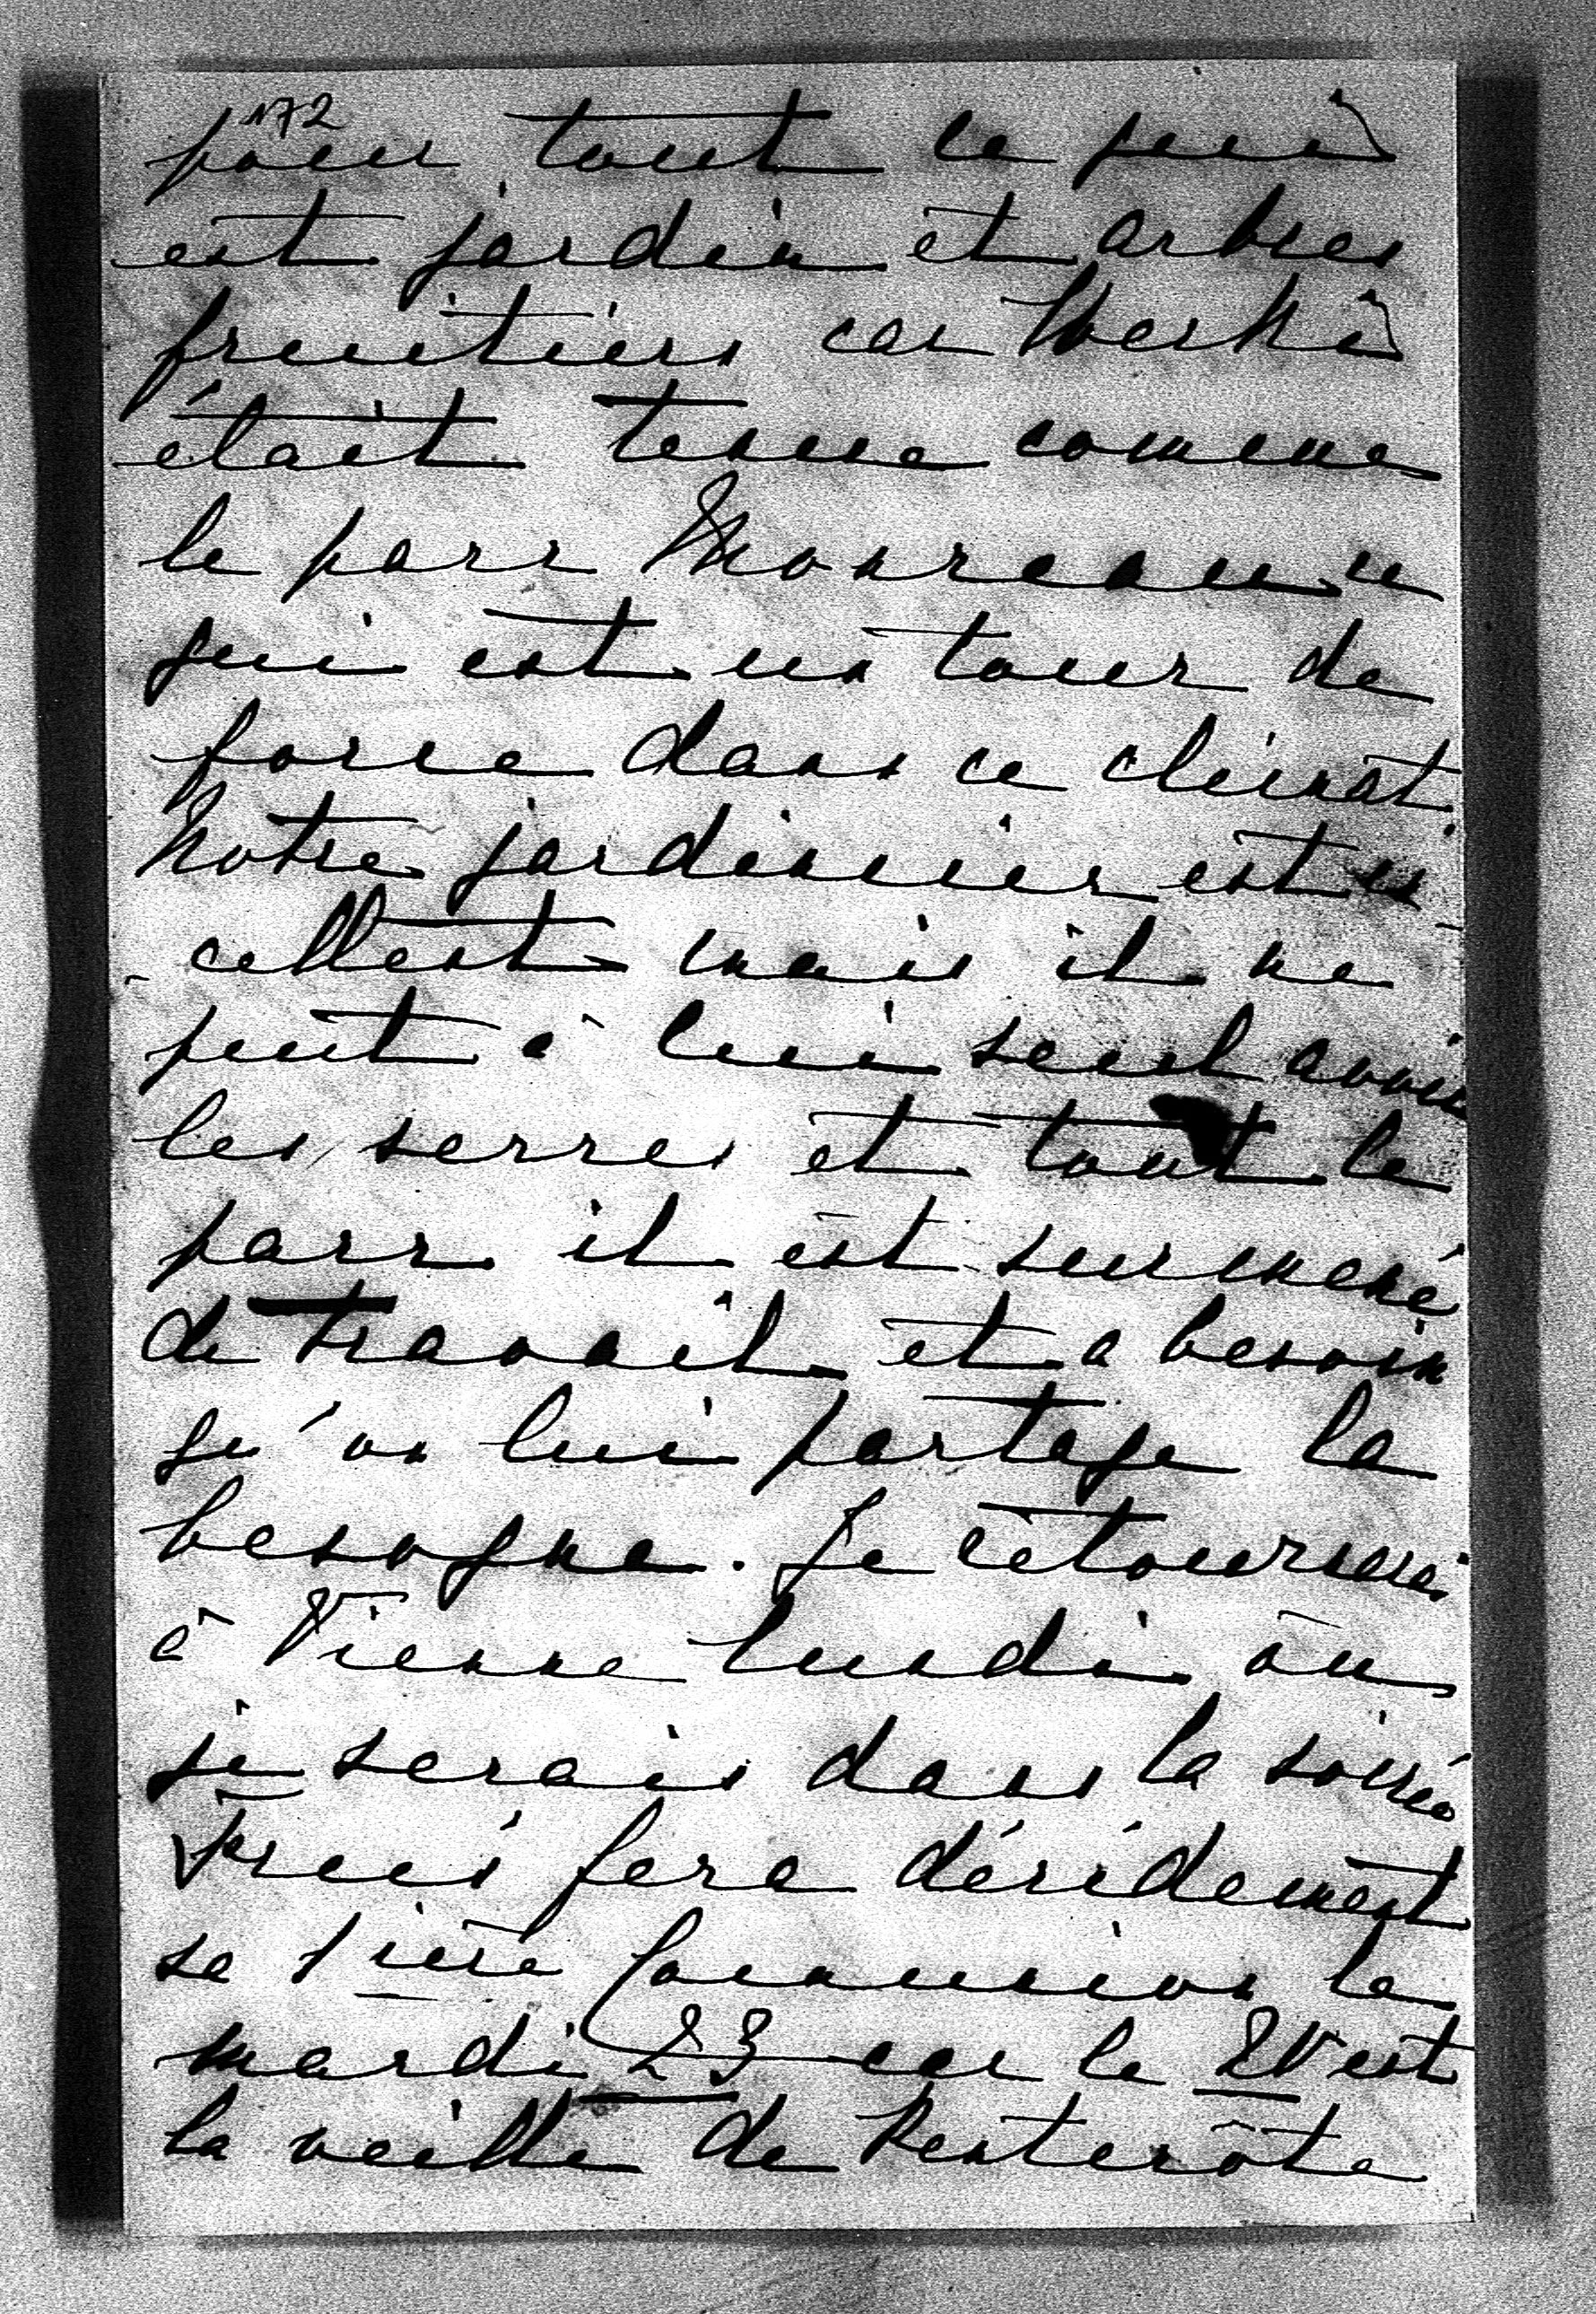 172
pour tout ce qui
est jardin et arbres
fruitiers car Werki
était tenue comme
le parc Monceau ce
qui est un tour de
force dans ce climat
Notre jardinier est ex-
-cellent mais il ne
peut à lui seul avoir
les serres et tout le
parc il est surmené
de travail et a besoin
qu'on lui partage la
besogne. Je retournerai
à Vienne lundi où
je serais dans la soirée
fera décidement
sa 1ière Communion le
mardi 23 car le 20 est
la veille de Pentecôte